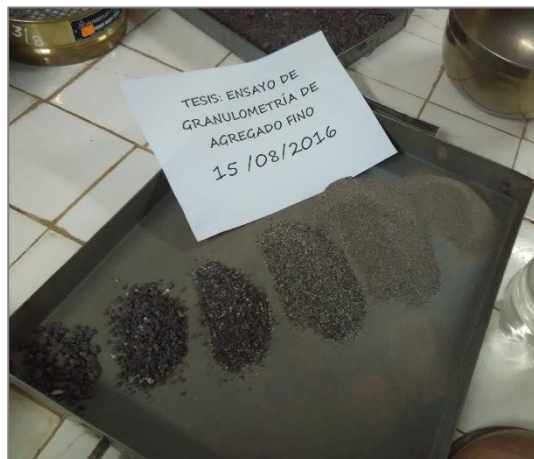 3/8
TESIS: ENSAYO DE
GRANULOMETRÍA DE
AGREGADO FINO
15 /08/2016